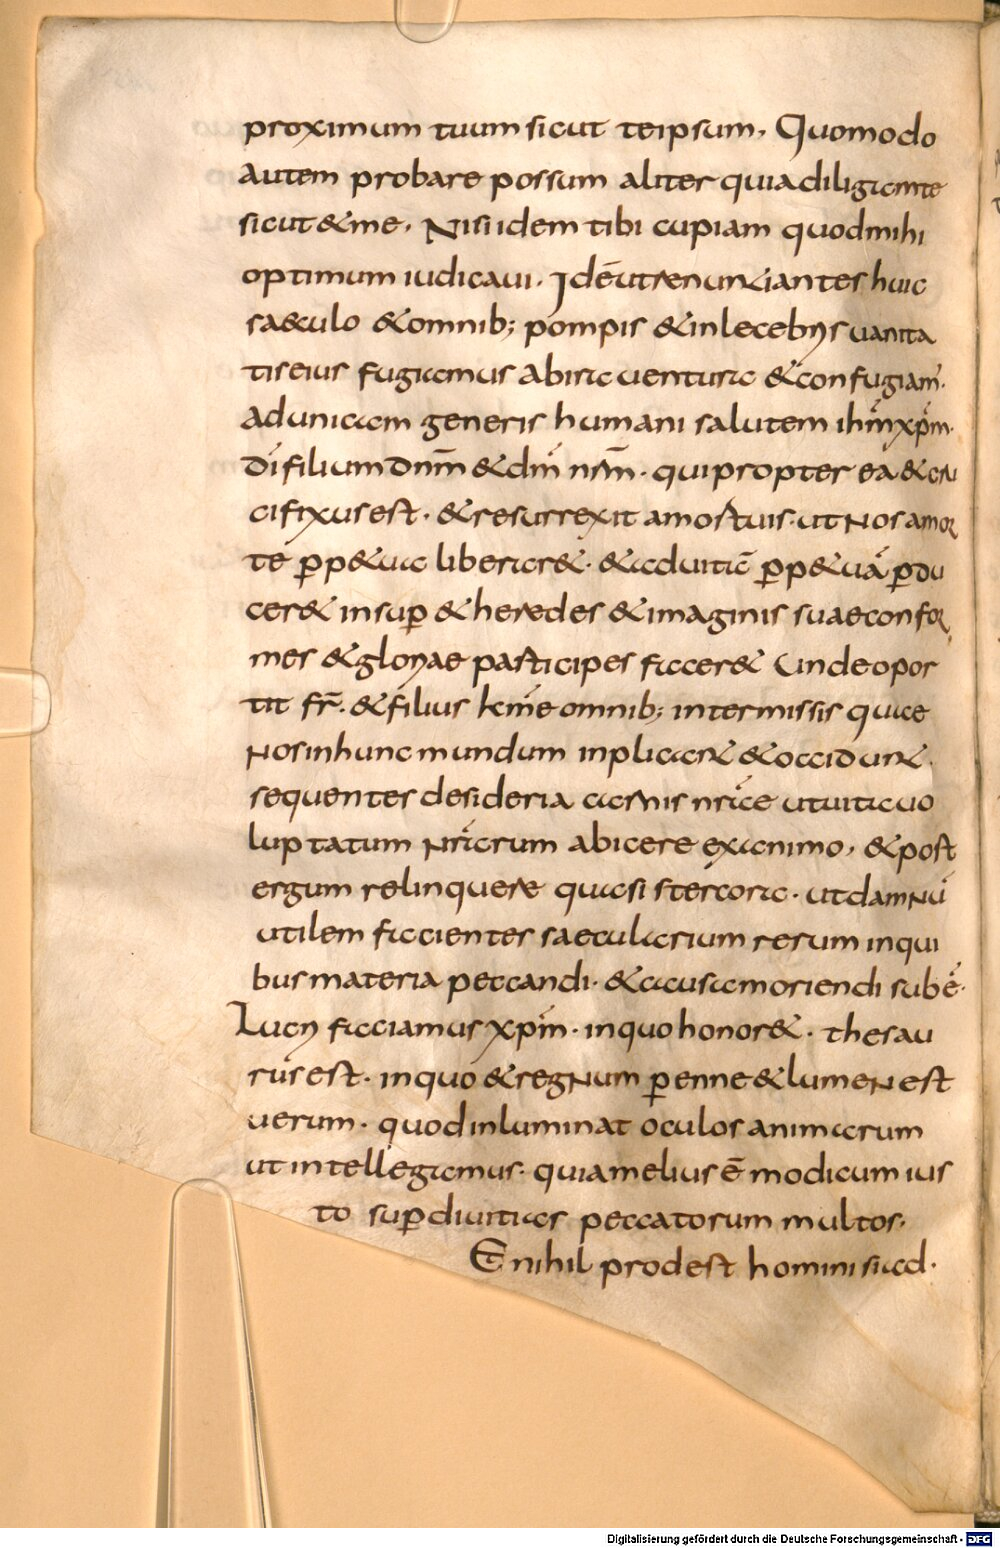 proximum tuum sicut teipsum, Quomodo
autem probare possum aliter quia diligam te
sicut & me, Nisi idem tibi cupiam quod mihi
optimum iudicaui. Idē ut renuntiantes huic
saeculo & omnib; pompis & inlecebris uanita
tis eius fugiamus abire uentura & confugiam̅.
Ad unicam generis humani salutem ih̅m xp̅m.
d̅i filium dn̅m & dm̅ nr̅m. qui propter ea & cru
cifixus est. & resurrexit a mortuis. ut nos a mor
te ꝑp&ua liberar&. & ad uitā ꝑp&uā ꝑdu
cer& insuꝑ & heredes & imaginis suae confor
mes & gloriae participes facer& Unde opor
tit fr̅. & filius km̅e omnib; intermissis quae
nos in hunc mundum inplicant & occidunt.
sequentes desideria carnis nr̅ae ut uita uo
luptatum nr̅arum abicere ex animo, & post
ergum relinquere quasi stercora. ut damnū
utilem facientes saecularium rerum in qui
bus materia peccandi. & causa moriendi subē.
Lucri faciamus xp̅m. in quo honor &. thesau
rus est. in quo & regnum ꝑenne & lumen est
uerum. quod inluminat oculos animarum
ut intellegamus. quia melius ē modicum ius
to suꝑ diuitias peccatorum multos.
Et nihil prodest homini si ad.
Digitalisierung gefördert durch die Deutsche Forschungsgemeinschaft - DFG